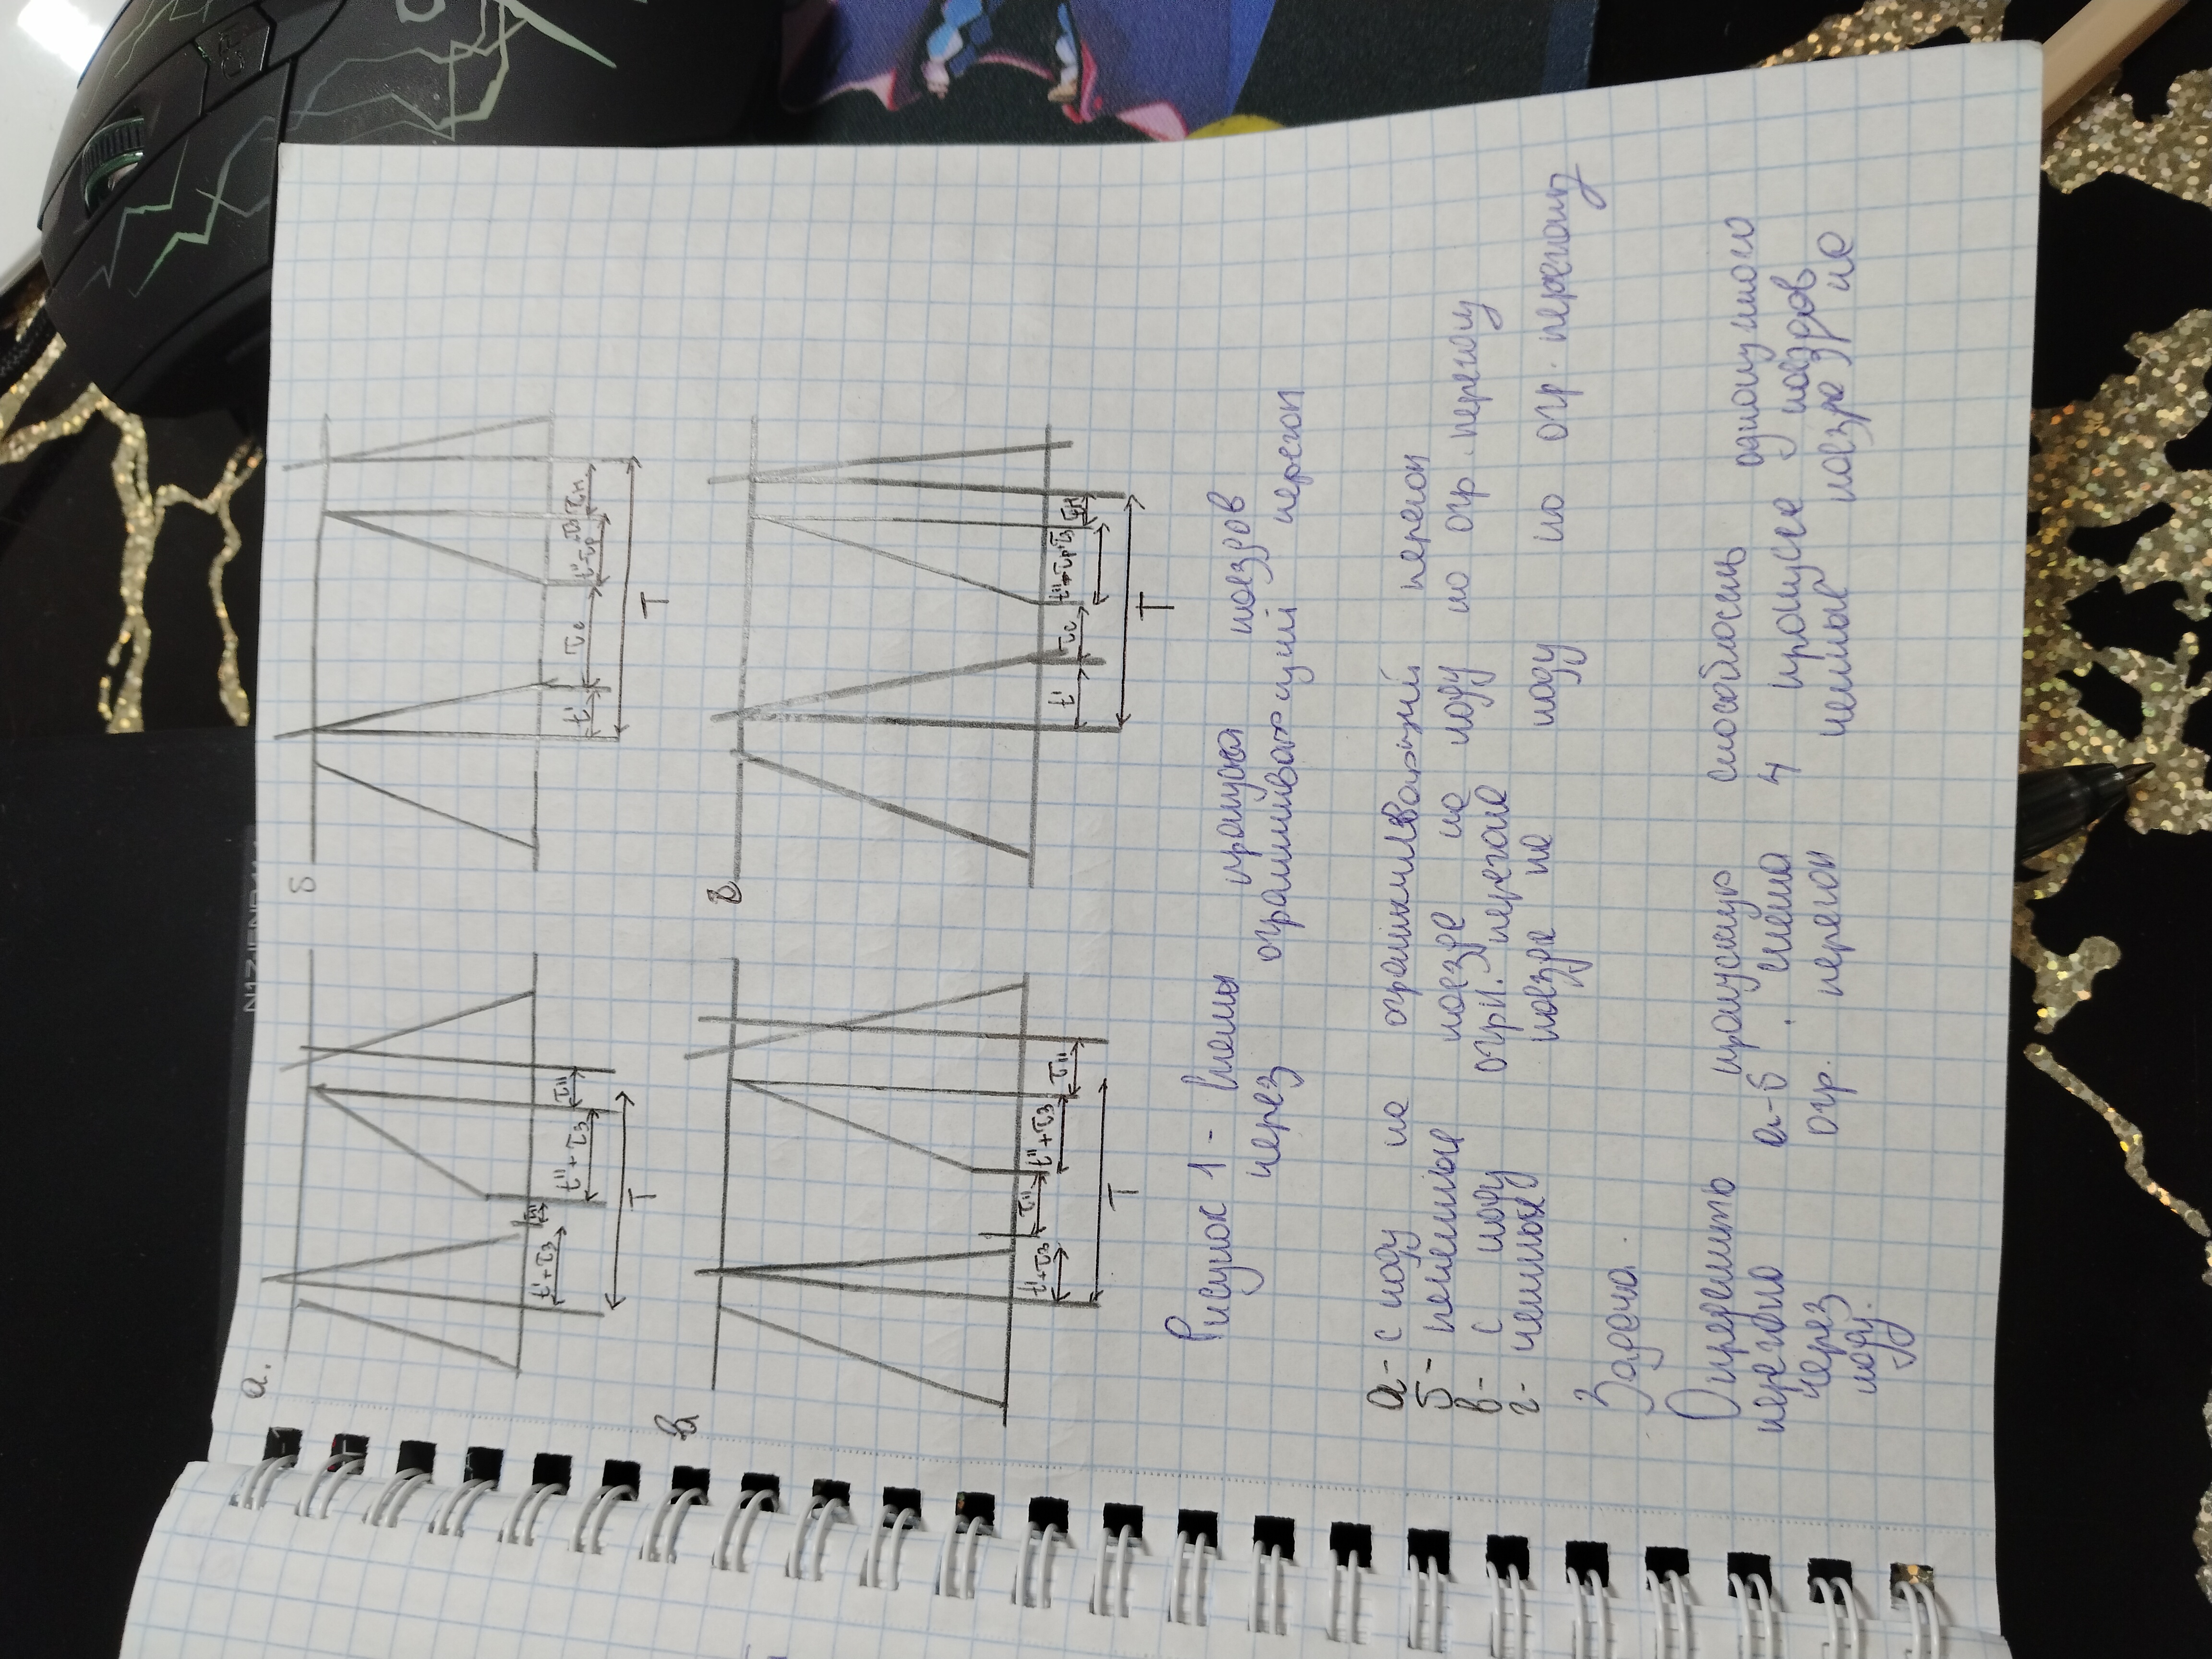 а.
б
t'+τз
τ"
t"+τз
τ"
T
t'
τс
t"-τр-τз
τн
T
в
г
t'+τз
τ"
t"+τз
τ"
T
t'
τс
t"+τр+τз
τн
T
Рисунок 1 - Схемы пропуска поездов
через ограничивающий перегон
а- с ходу на ограничивающий перегон
б- нечетные поезда на ходу по огр. перегону
в- с ходу огрн. перегона
г- четных поезда на ходу по огр. перегону
Задача.
Определить пропускную способность однопутного
перегона а-б. схема 4 пропуске поездов
через огр. перегон четные поезда не
ходу.